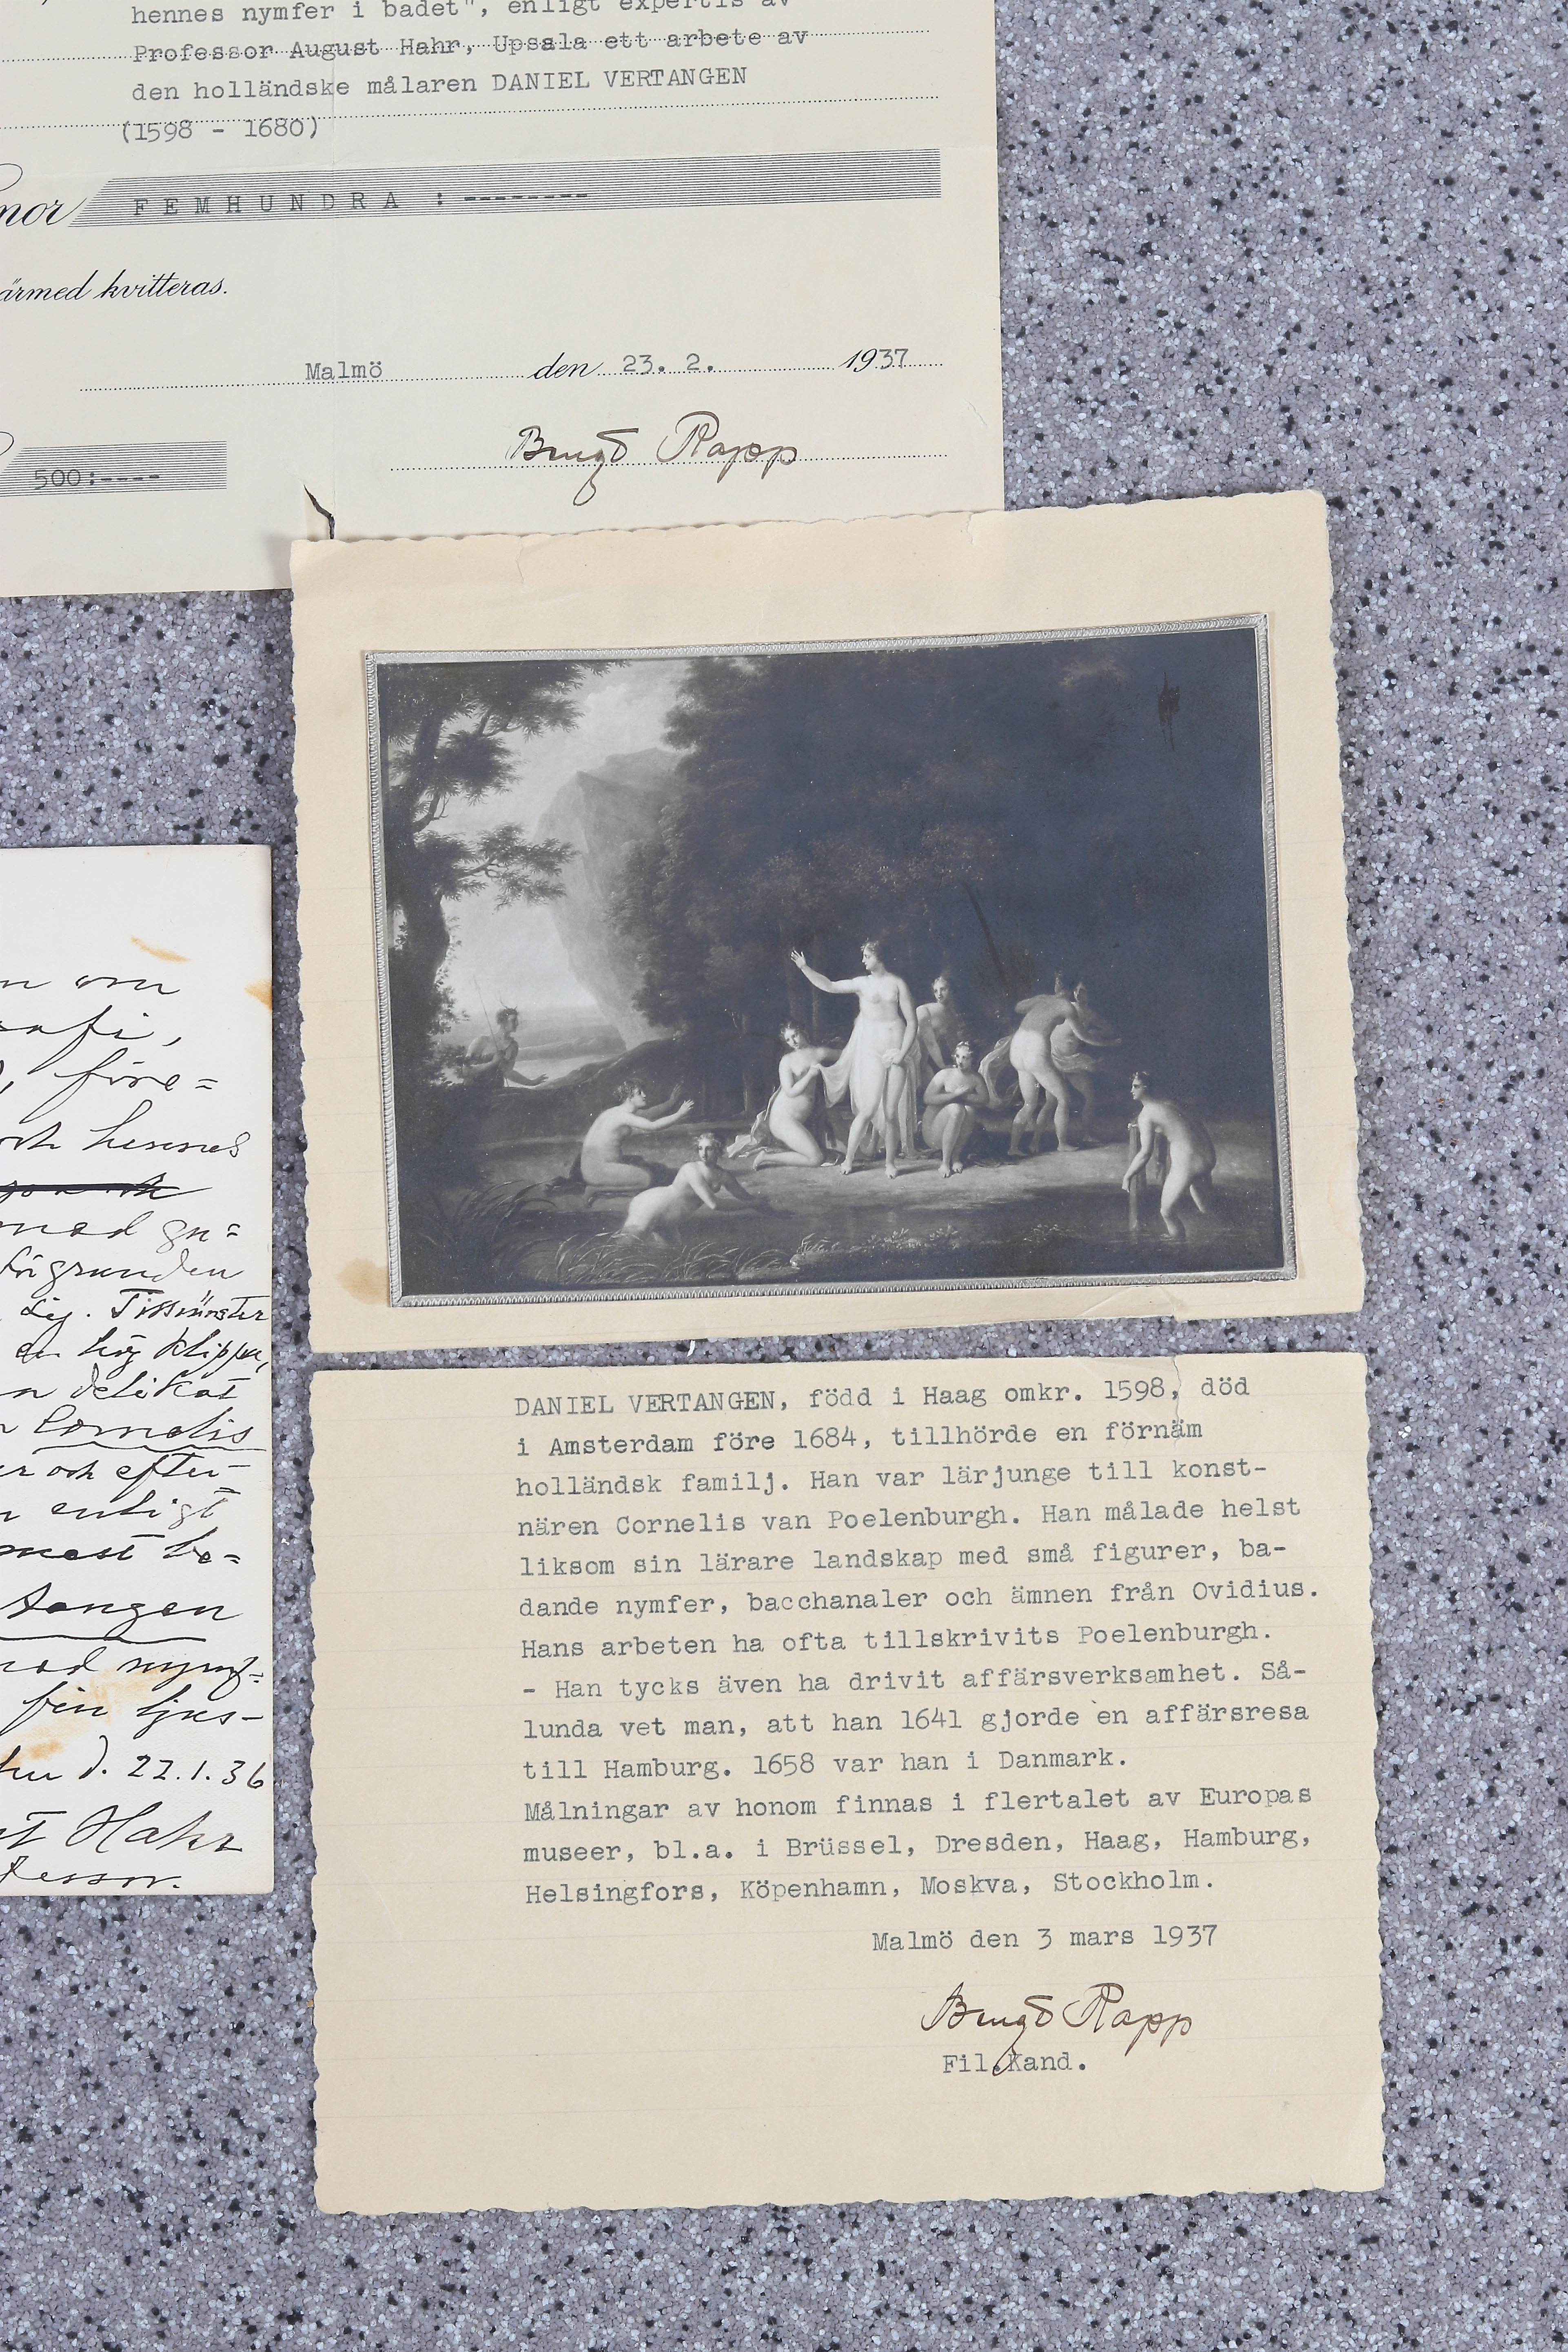 hennes nymfer i badet", enligt expertis av
Professor August Hahr, Upsala ett arbete av
den holländske målaren DANIEL VERTANGEN
(1598 - 1680)
FEMHUNDRA :--------
ärmed kvitteras.
Malmö den 23. 2. 1937
Bengt Rapp
500:----
om
före=
och hennes
med gu=
förgrunden
en hög klippa,
delikat
Cornelis
och efter-
enligt
mest be=
tangen
nymf=
fin ljus-
d. 22.1.36
Hahr
DANIEL VERTANGEN, född i Haag omkr. 1598, död
i Amsterdam före 1684, tillhörde en förnäm
holländsk familj. Han var lärjunge till konst-
nären Cornelis van Poelenburgh. Han målade helst
liksom sin lärare landskap med små figurer, ba-
dande nymfer, bacchanaler och ämnen från Ovidius.
Hans arbeten ha ofta tillskrivits Poelenburgh.
- Han tycks även ha drivit affärsverksamhet. Så-
lunda vet man, att han 1641 gjorde en affärsresa
till Hamburg. 1658 var han i Danmark.
Målningar av honom finnas i flertalet av Europas
museer, bl.a. i Brüssel, Dresden, Haag, Hamburg,
Helsingfors, Köpenhamn, Moskva, Stockholm.
Malmö den 3 mars 1937
Bengt Rapp
Fil.Kand.